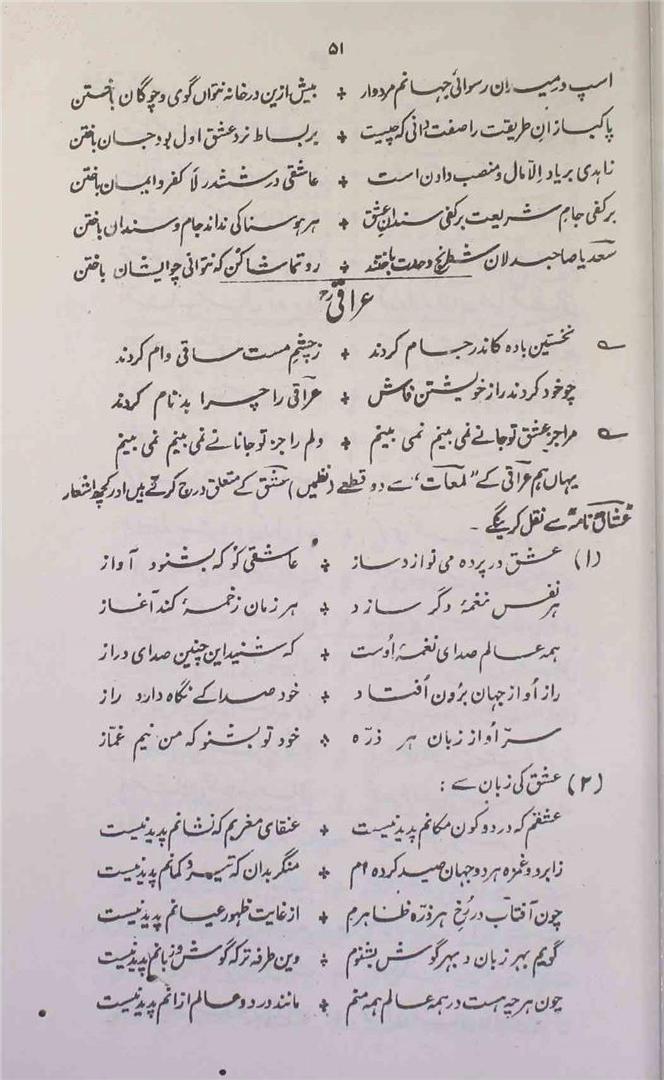 ۵۱
اسپ در میدان رسوائی جہانم مردوار ٭ بیش ازین در خانہ نتواں گوی و چوگان باختن
پاکبازانِ طریقت را صفت دانی کہ چیست ٭ بر بساط نرد عشق اول بود جان باختن
زاہدی بر یاد اِلّا مال و منصب دادن است ٭ عاشقی در ششدر لَا کفر و ایمان باختن
بر کفی جامِ شریعت بر کفی سندانِ عشق ٭ ہر ہوسناکی نداند جام و سندان باختن
سعدیا صاحبدلان شطرنج وحدت باختند ٭ رو تماشا کن کہ نتوانی چو ایشان باختن
عراقیؒ
نخستین بادہ کاندر جام کردند ٭ ز چشمِ مست ساقی وام کردند
چو خود کردند راز خویشتن فاش ٭ عراقی را چرا بد نام کردند
مرا جز عشق تو جانے نمی بینم نمی بینم ٭ دلم را جز تو جانانے نمی بینم نمی بینم
یہاں ہم عراقی کے "لمعات" سے دو قطعے (نظمیں) عشق کے متعلق درج کرتے ہیں اور کچھ اشعار
"عشاق نامہ" سے نقل کرینگے۔
(۱) عشق در پردہ می نوازد ساز ٭ عاشقی کو کہ بشنود آواز
ہر نفس نغمۂ دگر سازد ٭ ہر زمان زخمۂ کند آغاز
ہمہ عالم صدای نغمۂ اُوست ٭ کہ شنید این چنین صدای دراز
راز اُو از جہان برُون اُفتاد ٭ خود صدا کے نگاہ دارد راز
سرّ اُو از زبان ہر ذرّہ ٭ خود تو بشنو کہ من نیم غمّاز
(۲) عشق کی زبان سے :
عشقم کہ در دو کون مکانم پدید نیست ٭ عنقای مغربم کہ نشانم پدید نیست
ز ابرو و غمزہ ہر دو جہان صید کردہ ام ٭ منگر بدان کہ تیر و کمانم پدید نیست
چون آفتاب در رُخِ ہر ذرّہ ظاہرم ٭ از غایت ظہور عیانم پدید نیست
گویم بہر زبان و بہر گوش بشنوم ٭ وین طرفہ تر کہ گوش و زبانم پدید نیست
چون ہر چہ ہست در ہمہ عالم ہمہ منم ٭ مانند در دو عالم ازانم پدید نیست